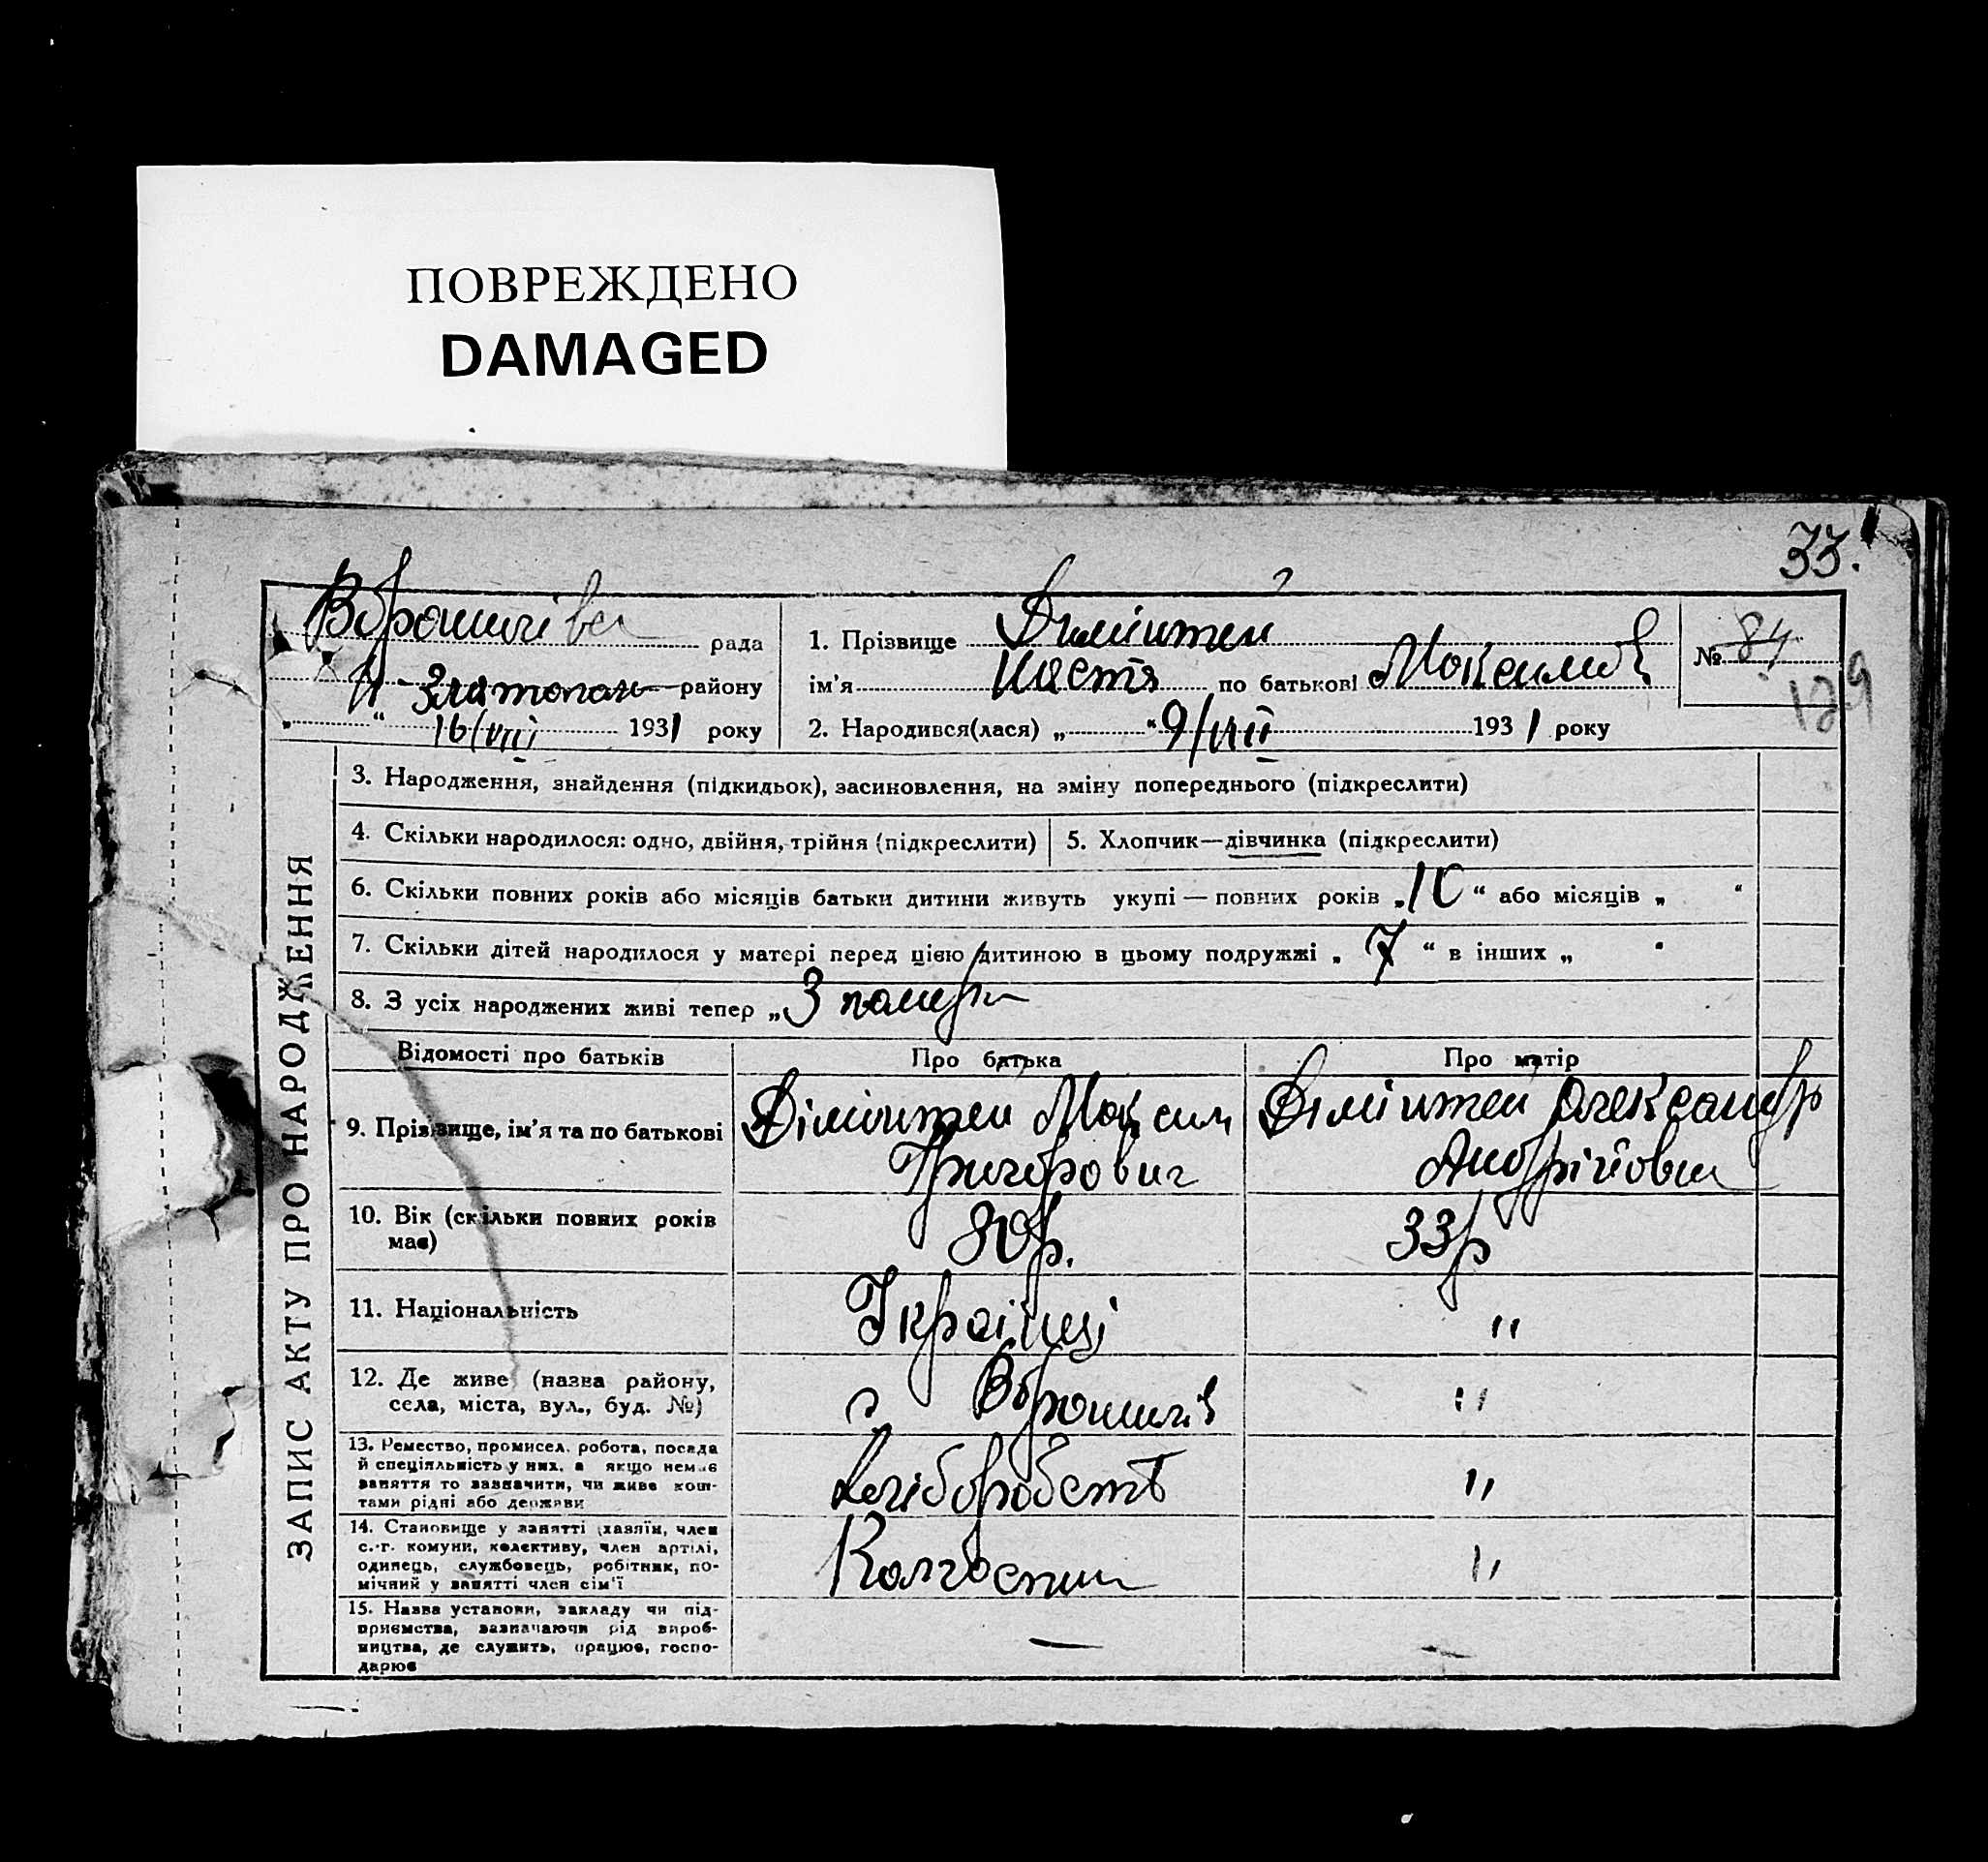 ПОВРЕЖДЕНО
DAMAGED
33.
рада
1. Прізвище
№ 84
129
Н-Златопол району
ім'я Настя по батькові Максимов
" " 16/VIII 1931 року
2. Народився(лася) „ " 9/VIII 1931 року
ЗАПИС АКТУ ПРО НАРОДЖЕННЯ
3. Народження, знайдення (підкидьок), засиновлення, на зміну попереднього (підкреслити)
4. Скільки народилося: одно, двійня, трійня (підкреслити)
5. Хлопчик—дівчинка (підкреслити)
6. Скільки повних років або місяців батьки дитини живуть укупі — повних років „10" або місяців „ "
7. Скільки дітей народилося у матері перед цією дитиною в цьому подружжі „ 7 " в інших „ "
8. З усіх народжених живі тепер „3 померли
Відомості про батьків
Про батька
Про матір
9. Прізвище, ім'я та по батькові
Максим
Григорович
Олександр
Андрійовна
10. Вік (скільки повних років
має)
33р
11. Національність
Українці
"
12. Де живе (назва району,
села, міста, вул., буд. №)
"
13. Ремество, промисел, робота, посада
й спеціяльність у них, а якщо немає
заняття то зазначити, чи живе кош-
тами рідні або держави
Хліборобств
"
14. Становище у занятті (хазяїн, член
с.-г. комуни, колективу, член артілі,
одинець, службовець, робітник, по-
мічний у занятті член сім'ї
Колгоспник
"
15. Назва установи, закладу чи під-
приємства, зазначаючи рід вироб-
ництва, де служить, працює, госпо-
дарює
—
—